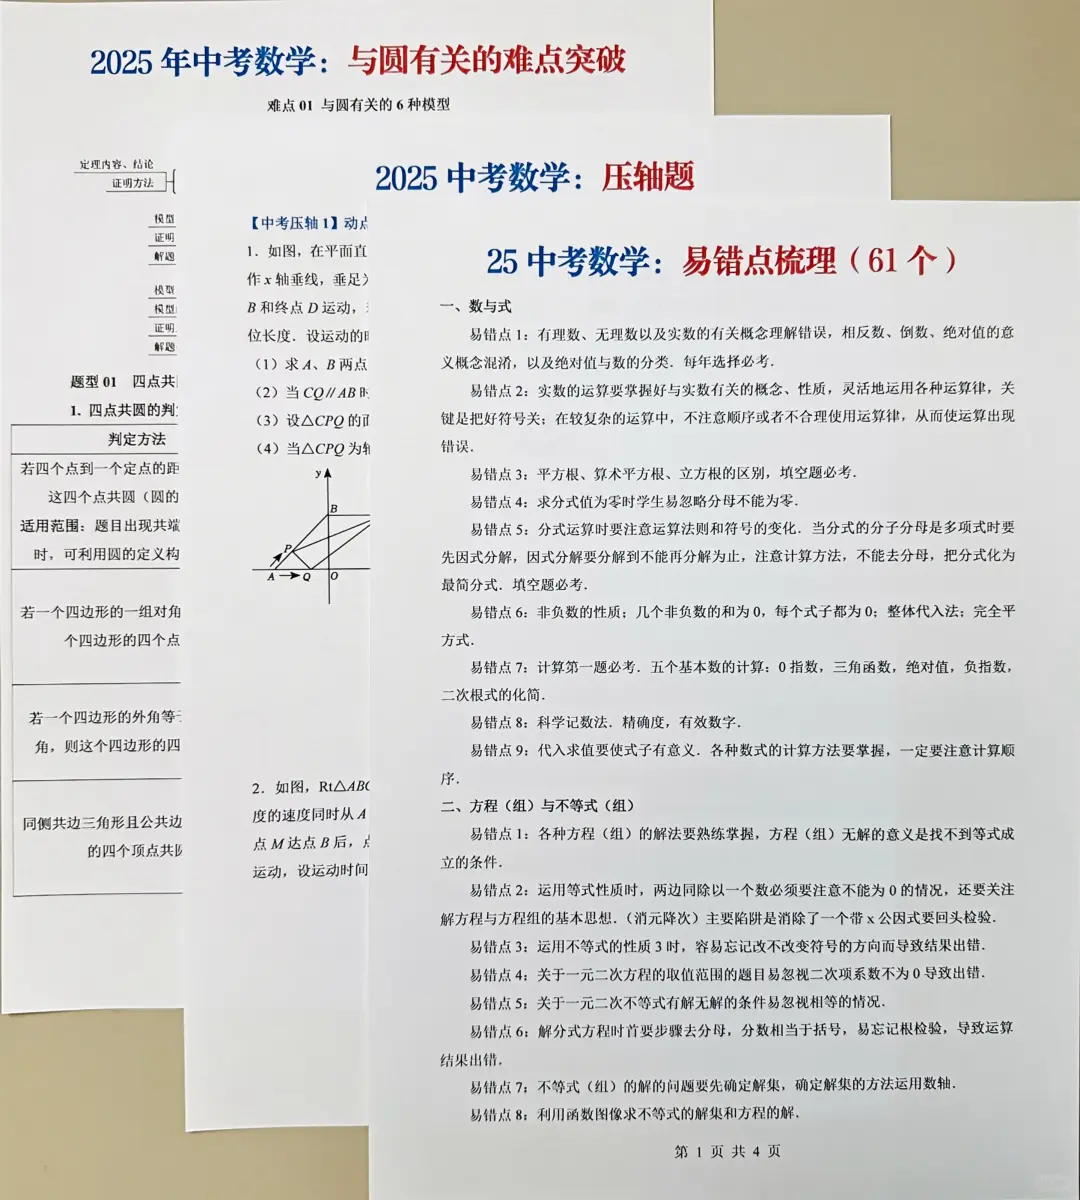 2025 年中考数学：与圆有关的难点突破
难点 01 与圆有关的 6 种模型
定理内容、结论
证明方法
模型
证明
解题
模型
模型
证明
解题
题型 01 四点共
1. 四点共圆的判
判定方法
若四个点到一个定点的距
这四个点共圆（圆的
适用范围：题目出现共端
时，可利用圆的定义构
若一个四边形的一组对角
个四边形的四个点
若一个四边形的外角等于
角，则这个四边形的四
同侧共边三角形且公共边
的四个顶点共
2025 中考数学：压轴题
【中考压轴 1】动点
1．如图，在平面直
作 x 轴垂线，垂足为
B 和终点 D 运动，
位长度．设运动的时
（1）求 A、B 两点
（2）当 CQ∥AB 时
（3）设△CPQ 的面
（4）当△CPQ 为
y
B
P
A
Q
O
2．如图，Rt△ABC
度的速度同时从 A
点 M 达点 B 后，点
运动，设运动时间
25 中考数学：易错点梳理（61 个）
一、数与式
易错点 1：有理数、无理数以及实数的有关概念理解错误，相反数、倒数、绝对值的意
义概念混淆，以及绝对值与数的分类．每年选择必考．
易错点 2：实数的运算要掌握好与实数有关的概念、性质，灵活地运用各种运算律，关
键是把好符号关；在较复杂的运算中，不注意顺序或者不合理使用运算律，从而使运算出现
错误．
易错点 3：平方根、算术平方根、立方根的区别，填空题必考．
易错点 4：求分式值为零时学生易忽略分母不能为零．
易错点 5：分式运算时要注意运算法则和符号的变化．当分式的分子分母是多项式时要
先因式分解，因式分解要分解到不能再分解为止，注意计算方法，不能去分母，把分式化为
最简分式．填空题必考．
易错点 6：非负数的性质；几个非负数的和为 0，每个式子都为 0；整体代入法；完全平
方式．
易错点 7：计算第一题必考．五个基本数的计算：0 指数，三角函数，绝对值，负指数，
二次根式的化简．
易错点 8：科学记数法．精确度，有效数字．
易错点 9：代入求值要使式子有意义．各种数式的计算方法要掌握，一定要注意计算顺
序．
二、方程（组）与不等式（组）
易错点 1：各种方程（组）的解法要熟练掌握，方程（组）无解的意义是找不到等式成
立的条件．
易错点 2：运用等式性质时，两边同除以一个数必须要注意不能为 0 的情况，还要关注
解方程与方程组的基本思想．（消元降次）主要陷阱是消除了一个带 x 公因式要回头检验．
易错点 3：运用不等式的性质 3 时，容易忘记改不改变符号的方向而导致结果出错．
易错点 4：关于一元二次方程的取值范围的题目易忽视二次项系数不为 0 导致出错．
易错点 5：关于一元二次不等式有解无解的条件易忽视相等的情况．
易错点 6：解分式方程时首要步骤去分母，分数相当于括号，易忘记根检验，导致运算
结果出错．
易错点 7：不等式（组）的解的问题要先确定解集，确定解集的方法运用数轴．
易错点 8：利用函数图像求不等式的解集和方程的解．
第 1 页 共 4 页